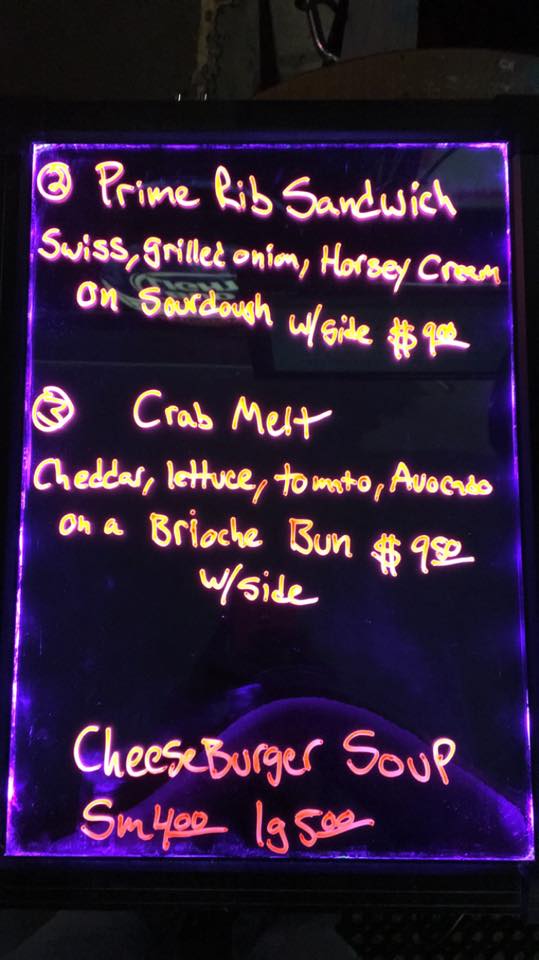 ② Prime Rib Sandwich
Swiss, grilled onion, Horsey Cream
on Sourdough w/side $9.00
③ Crab Melt
Cheddar, lettuce, tomato, Avocado
on a Brioche Bun $9.50
w/side
CheeseBurger Soup
Sm 4.00 lg 5.00